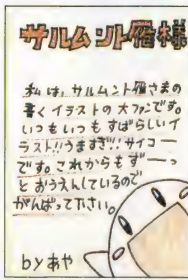 サルムント偕様
私は、サルムント偕さまの
書くイラストの大ファンです。
いつもいつもすばらしいイ
ラスト!!うますぎ!!サイコー
です。これからもずーっ
とおうえんしているので
がんばって下さい。
byあや